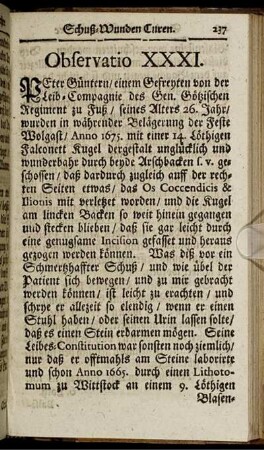 Schuß-Wunden Curen. 237
Observatio XXXI.
PEter Güntern / einem Gefreyten von der
Leib-Compagnie des Gen. Götzischen
Regiment zu Fuß / seines Alters 26. Jahr /
wurden in währender Belägerung der Feste
Wolgast / Anno 1675. mit einer 14. Löthigen
Falconett Kugel dergestalt unglücklich und
wunderbahr durch beyde Arschbacken s. v. ge-
schossen / daß dardurch zugleich auff der rech-
ten Seiten etwas / das Os Coccendicis &
Ilionis mit verletzet worden / und die Kugel
am lincken Backen so weit hinein gegangen
und stecken blieben / daß sie gar leicht durch
eine genugsame Incision gefasset und heraus
gezogen werden können. Was diß vor ein
Schmertzhaffter Schuß / und wie übel der
Patient sich bewegen / und zu mir gebracht
werden können / ist leicht zu erachten / und
schrye er allezeit so elendig / wenn er einen
Stuhl haben / oder seinen Urin lassen solte /
daß es einen Stein erbarmen mögen. Seine
Leibes-Constitution war sonsten noch ziemlich /
nur daß er offtmahls am Steine laborirte
und schon Anno 1665. durch einen Lithoto-
mum zu Wittstock an einem 9. Löthigen
Blasen-